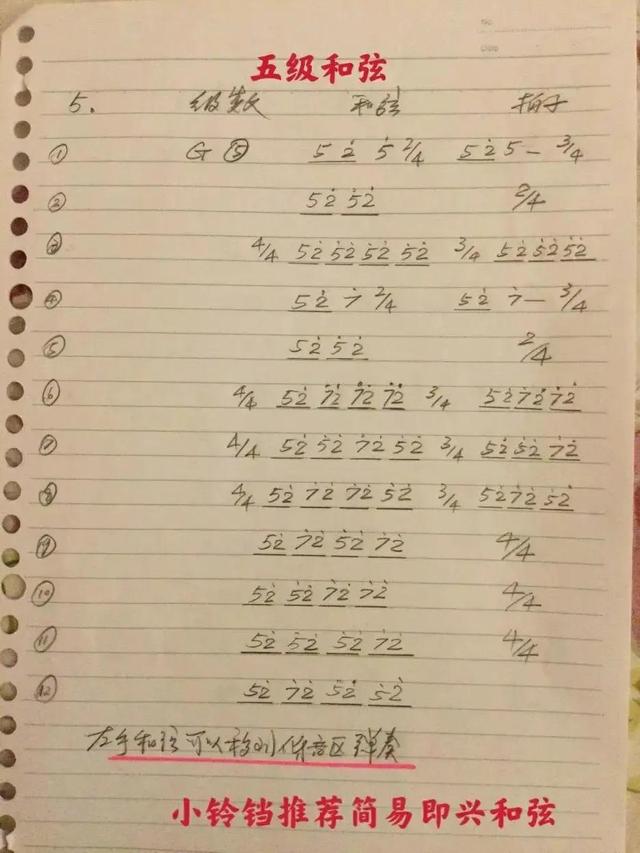 五级和弦
5. 级数 和弦 拍子
① G ⑤ 5 2̇ 5̇ 2/4 5 2̇ 5 — 3/4
② 5 2̇ 5̇ 2̇ 2/4
③ 4/4 5 2̇ 5̇ 2̇ 5̇ 2̇ 5̇ 2̇ 3/4 5 2̇ 5̇ 2̇ 5̇ 2̇
④ 5 2̇ 7̇ 2/4 5 2̇ 7̇ — 3/4
⑤ 5 2̇ 5̇ 2̇ 2/4
⑥ 4/4 5 2̇ 7̇ 2̇ 7̇ 2̇ 7̇ 2̇ 3/4 5 2̇ 7̇ 2̇ 7̇ 2̇
⑦ 4/4 5 2̇ 5̇ 2̇ 7̇ 2̇ 5̇ 2̇ 3/4 5 2̇ 5̇ 2̇ 7̇ 2̇
⑧ 4/4 5 2̇ 7̇ 2̇ 7̇ 2̇ 5̇ 2̇ 3/4 5 2̇ 7̇ 2̇ 5̇ 2̇
⑨ 5 2̇ 7̇ 2̇ 5̇ 2̇ 7̇ 2̇ 4/4
⑩ 5 2̇ 5̇ 2̇ 7̇ 2̇ 7̇ 2̇ 4/4
⑪ 5 2̇ 5̇ 2̇ 5̇ 2̇ 7̇ 2̇ 4/4
⑫ 5 2̇ 7̇ 2̇ 5̇ 2̇ 5̇ 2̇
左手和弦可以移到低音区弹奏
小铃铛推荐简易即兴和弦